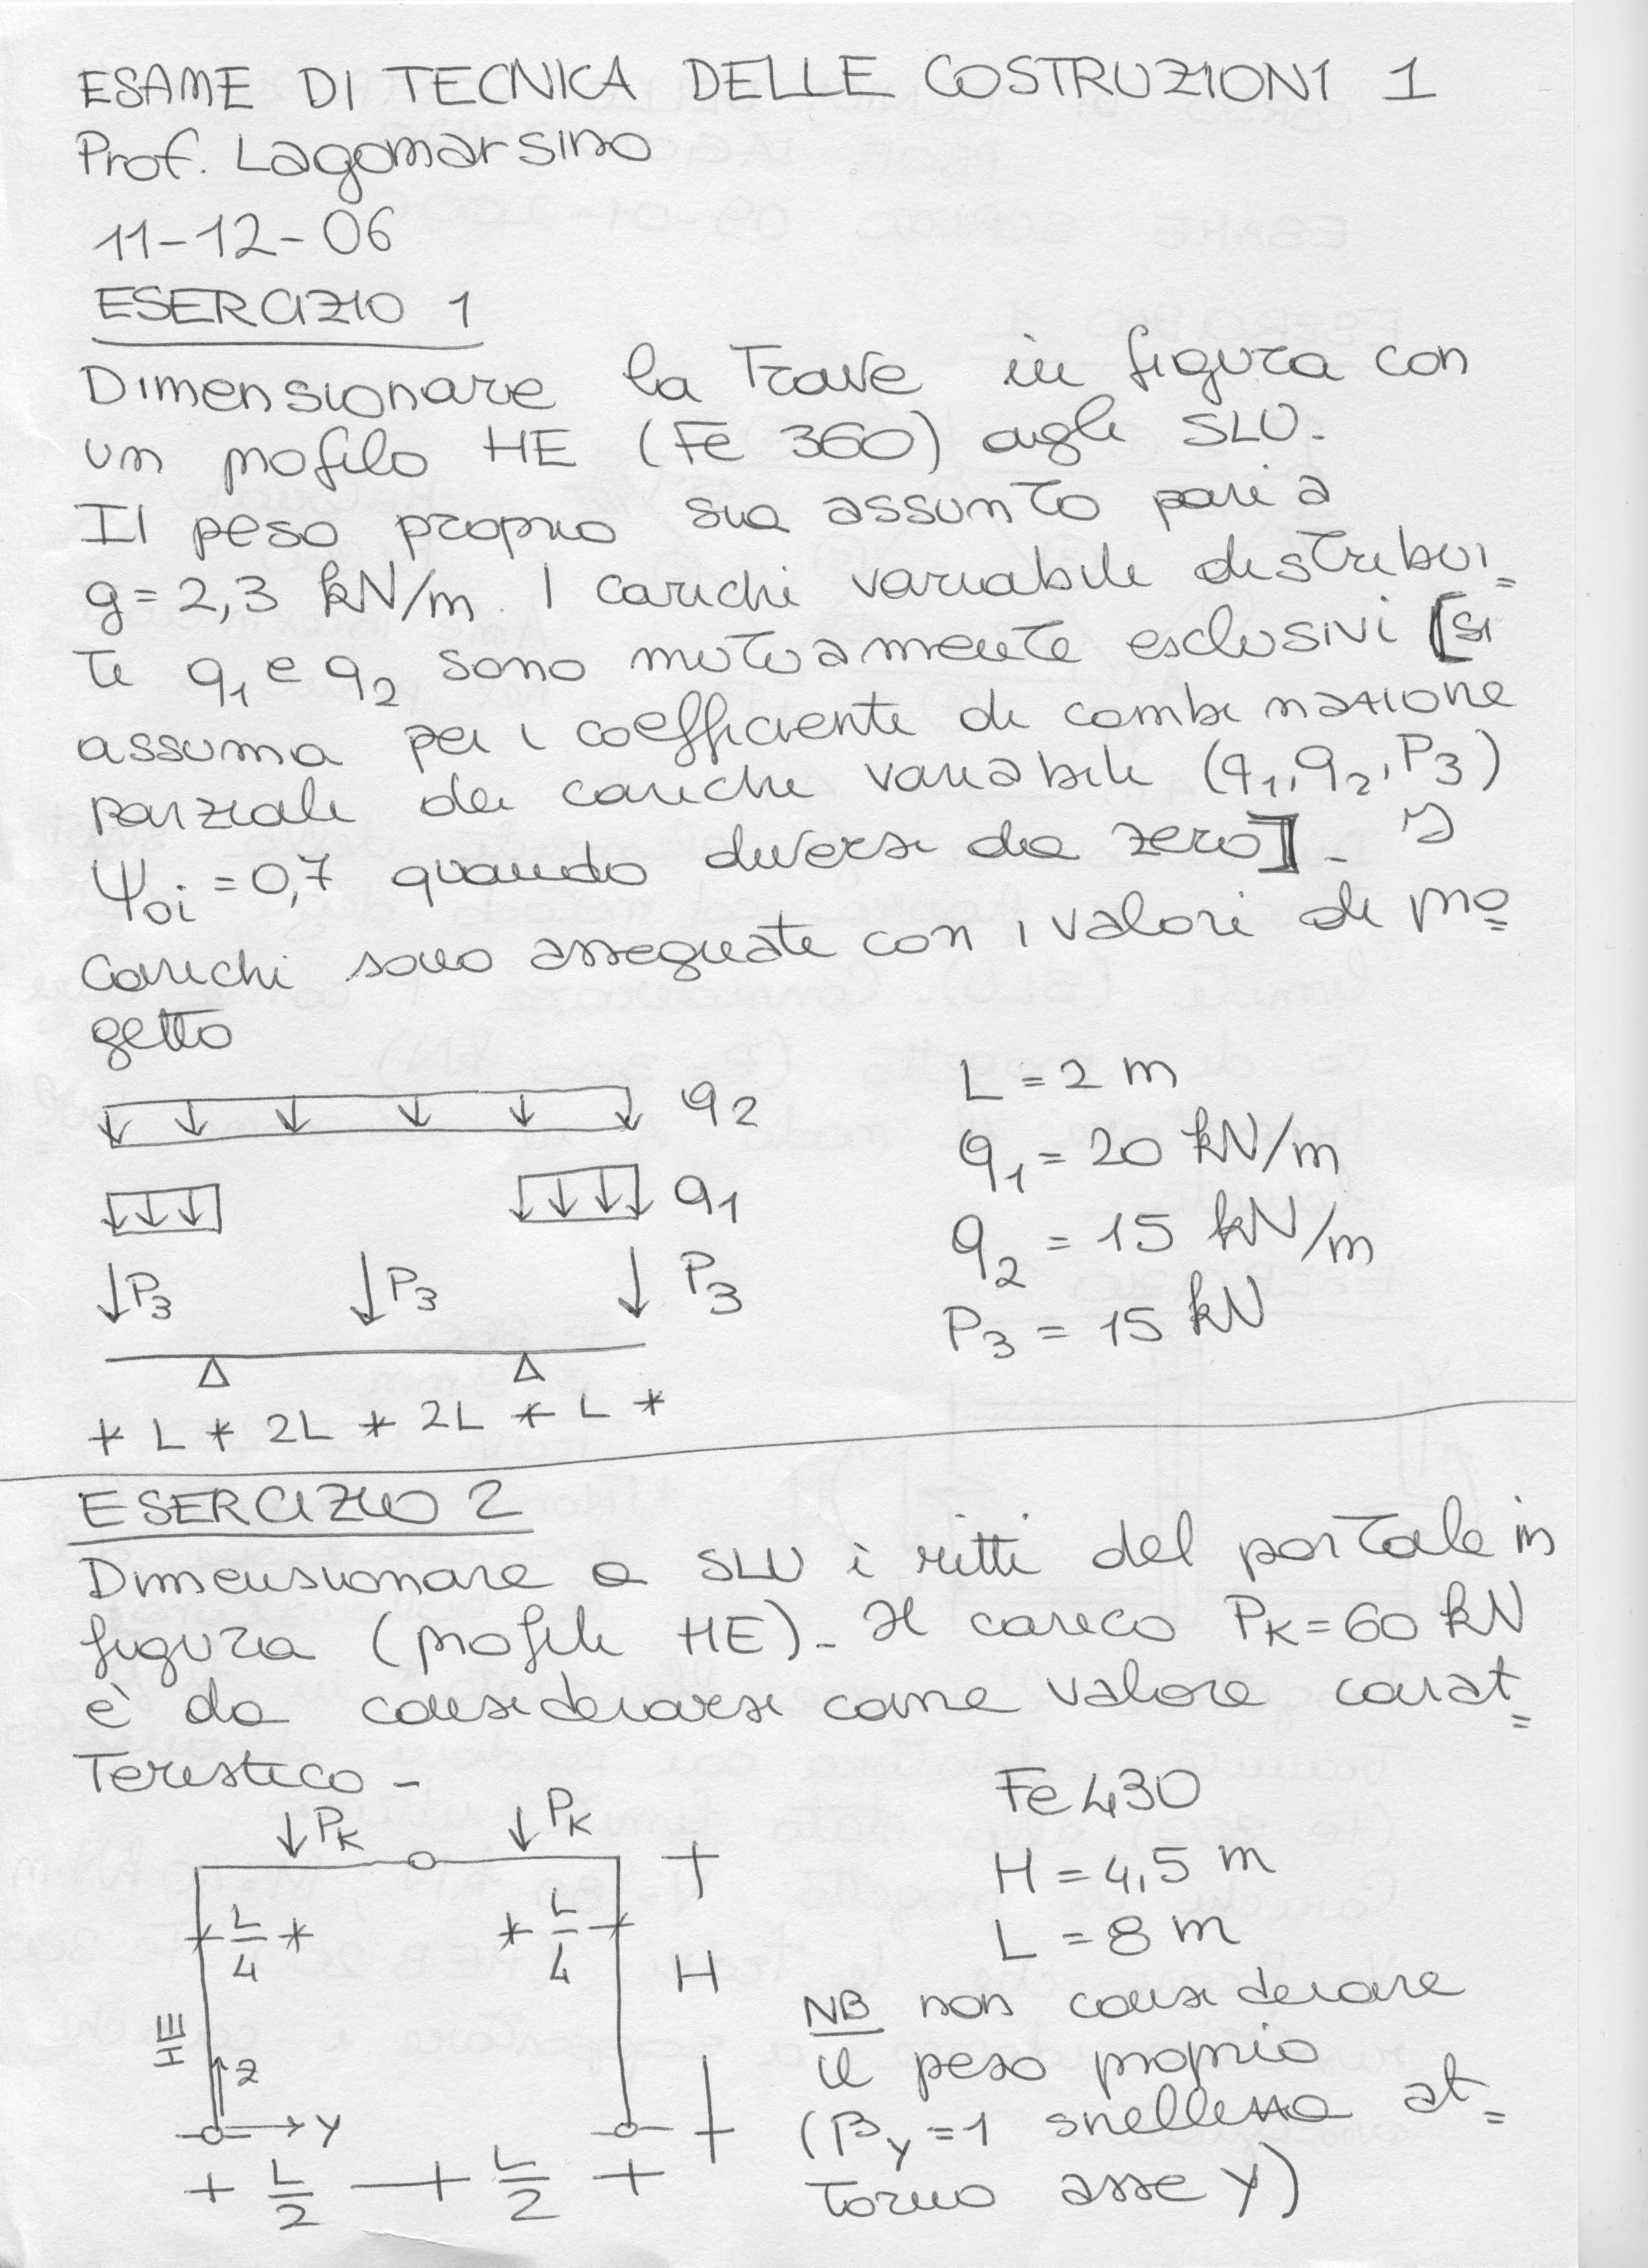 ESAME DI TECNICA DELLE COSTRUZIONI 1
Prof. Lagomarsino
11-12-06
ESERCIZIO 1
Dimensionare la Trave in figura con
un profilo HE (Fe 360) agli SLU.
Il peso proprio sia assunto pari a
g = 2,3 kN/m. I carichi variabili distribui=
ti q1 e q2 sono mutuamente esclusivi [si
assuma per i coefficienti di combinazione
parziali dei carichi variabili (q1, q2, P3)
Ψoi = 0,7 quando diversi da zero]. I
carichi sono assegnati con i valori di pro=
getto
q2
q1
P3 P3 P3
L 2L 2L L
L = 2 m
q1 = 20 kN/m
q2 = 15 kN/m
P3 = 15 kN
ESERCIZIO 2
Dimensionare a SLU i ritti del portale in
figura (profili HE). Il carico PK = 60 kN
è da considerarsi come valore carat=
teristico -
PK PK
L/4 L/4
H
HE
z
y
L/2 L/2
Fe 430
H = 4,5 m
L = 8 m
NB non considerare
il peso proprio
(βy = 1 snellezza at=
torno asse y)